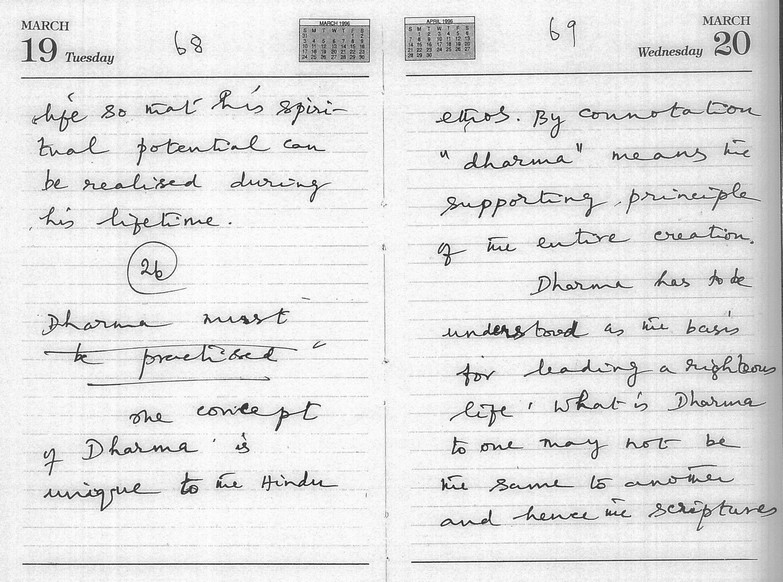 MARCH
19 Tuesday
68
MARCH 1996
life so that his spiri-
tual potential can
be realised during
his lifetime.
26
Dharma must
be practised
The concept
of Dharma is
unique to the Hindu
APRIL 1996
69
MARCH
Wednesday 20
ethos. By connotation
"dharma" means the
supporting principle
of the entire creation.
Dharma has to be
understood as the basis
for leading a righteous
life. What is Dharma
to one may not be
the same to another
and hence the scriptures